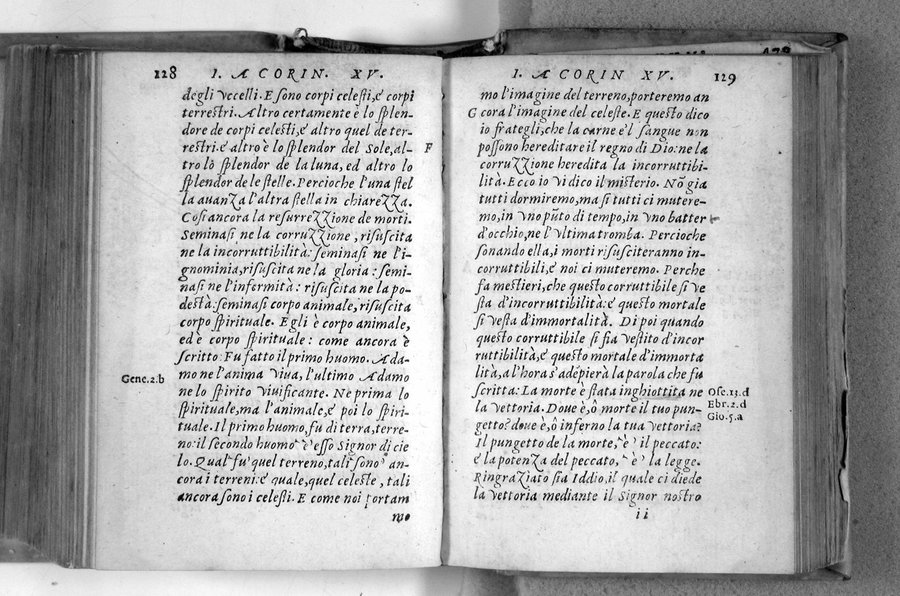 128 I. A CORIN. XV.
degli vccelli. E sono corpi celesti, e corpi
terrestri. Altro certamente è lo splen-
dore de corpi celesti, e altro quel de ter-
restri. e altro è lo splendor del Sole, al-
tro lo splendor de la luna, ed altro lo
splendor de le stelle. Percioche l'una stel
la auanza l'altra stella in chiarezza.
Cosi ancora la resurrezzione de morti.
Seminasi ne la corruzzione, risuscita
ne la incorruttibilità: seminasi ne l'i-
gnominia, risuscita ne la gloria: semi-
nasi ne l'infermità: risuscita ne la po-
destà: seminasi corpo animale, risuscita
corpo spirituale. Egli è corpo animale,
ed è corpo spirituale: come ancora è
scritto: Fu fatto il primo huomo. Ada-
Gene.2.b
mo ne l'anima viua, l'ultimo Adamo
ne lo spirito viuificante. Ne prima lo
spirituale, ma l'animale, e poi lo spiri-
tuale. Il primo huomo, fu di terra, terre-
no: il secondo huomo è esso Signor di cie
lo. Qual fu quel terreno, tali sono an-
cora i terreni: e quale, quel celeste, tali
ancora sono i celesti. E come noi portam
mo
I. A CORIN XV. 129
mo l'imagine del terreno, porteremo an
G cora l'imagine del celeste. E questo dico
io frategli, che la carne e'l sangue non
F possono hereditare il regno di Dio: ne la
corruzzione heredita la incorruttibi-
lità. Ecco io vi dico il misterio. Nõ gia
tutti dormiremo, ma si tutti ci mutere-
mo, in vno pũto di tempo, in vno batter
d'occhio, ne l'vltima tromba. Percioche
sonando ella, i morti risusciteranno in-
corruttibili, e noi ci muteremo. Perche
fa mestieri, che questo corruttibile si ve
sta d'incorruttibilità: e questo mortale
si vesta d'immortalità. Di poi quando
questo corruttibile si sia vestito d'incor
ruttibilità, e questo mortale d'immorta
lità, a l'hora s'adèpierà la parola che fu
scritta: La morte è stata inghiottita ne
la vettoria. Doue è, ô morte il tuo pun-
getto? doue è, ô inferno la tua vettoria?
Ose.13.d
Ebr.2.d
Gio.5.a
Il pungetto de la morte, è il peccato:
e la potenza del peccato, è la legge.
Ringraziato sia Iddio, il quale ci diede
la vettoria mediante il Signor nostro
ii